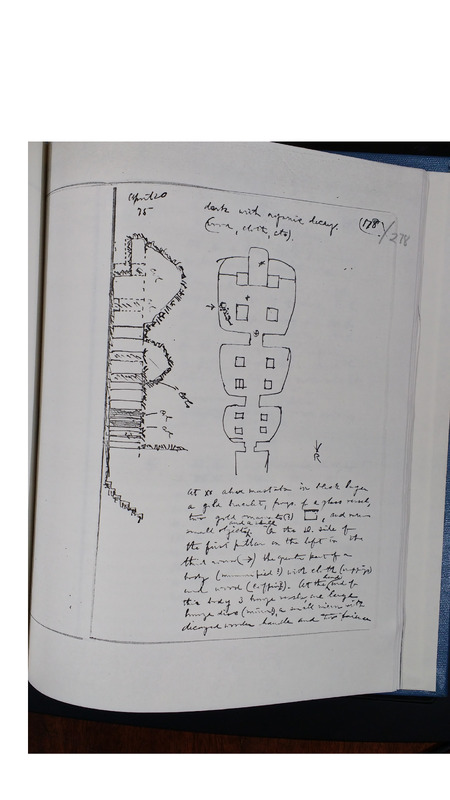 April 20
75
dark with organic decay.
(wood, cloth, etc).
(178)
/278
At xx above mentioned in black layer
a gold bracelet, frags. of a glass vessel,
two gold ornaments(?) , and more
and a skull
small objects. On the W. side of
the first pillar on the left in the
third room (→) the greater part of a
body (mummified?) with cloth (wrappings)
and wood (coffin?). At the head end of
this body 3 bronze vessels, one large
bronze disc (mirror), a small mirror with
decayed wooden handle and two